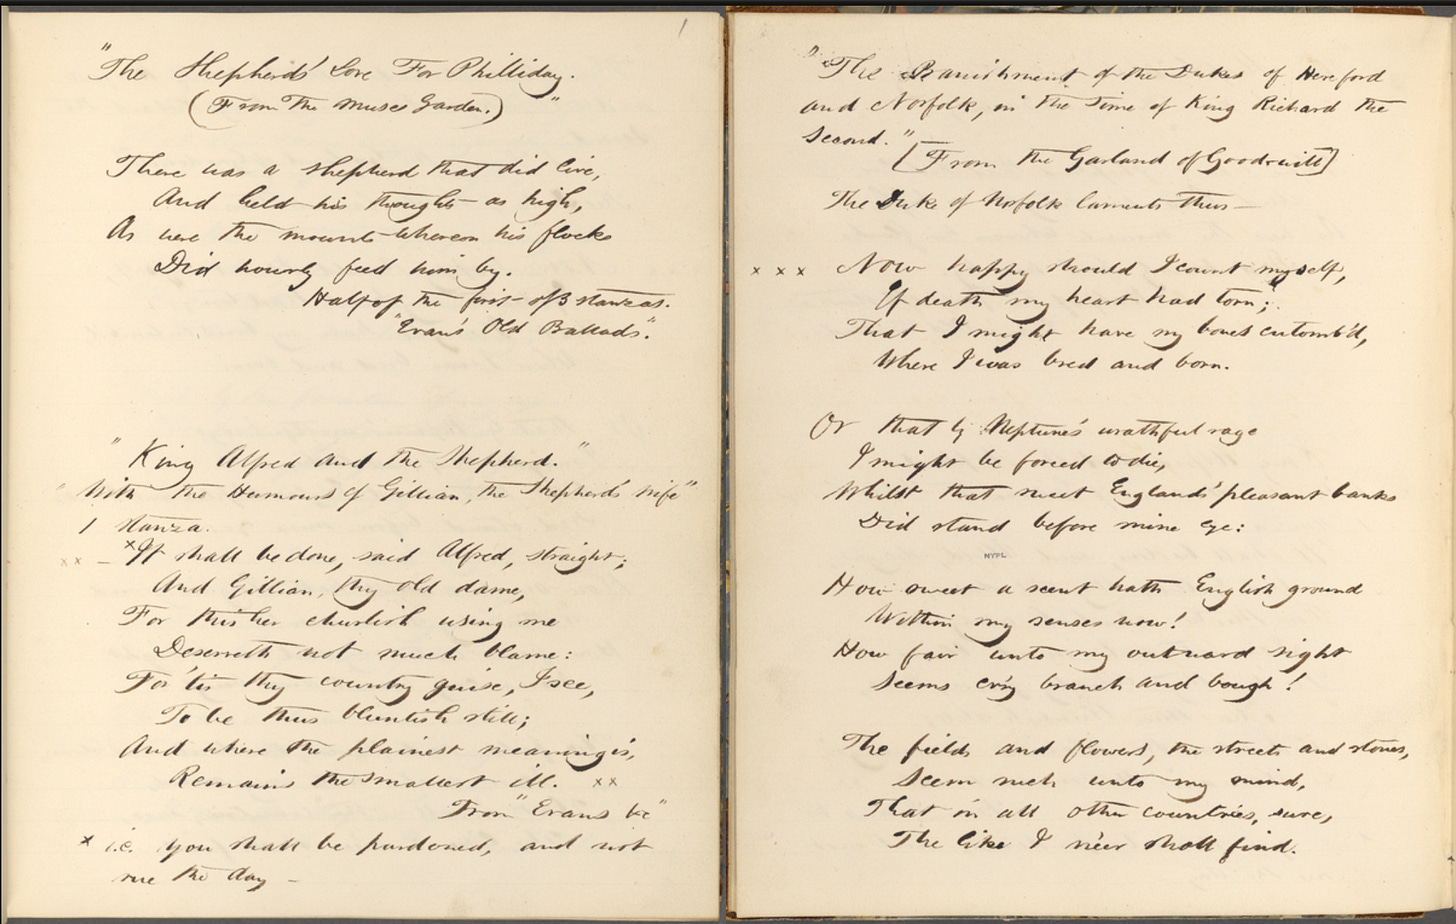 1
"The Shepherds' Love For Philliday."
(From The Muses Garden.)
There was a shepherd that did live,
And held his thoughts as high,
As were the mounts whereon his flocks
Did hourly feed him by.
Half of the first of 3 stanzas.
"Evan's Old Ballads".
"King Alfred and the Shepherd."
"With the Humours of Gillian, the Shepherd's wife"
1 stanza.
x x – x It shall be done, said Alfred, straight;
And Gillian, thy old dame,
For this her churlish using me
Deserveth not much blame:
For 'tis thy country guise, I see,
To be thus bluntish still;
And where the plainest meaning is,
Remains the smallest ill. x x
From "Evans &c"
x i.e. you shall be pardoned, and not
rue the day –
"The Banishment of the Dukes of Hereford
and Norfolk, in the Time of King Richard the
Second."
[From the Garland of Goodwill]
The Duke of Norfolk laments thus –
x x x Now happy should I count myself,
If death my heart had torn;
That I might have my bones entomb'd,
Where I was bred and born.
Or that by Neptune's wrathful rage
I might be forced to die,
Whilst that sweet Englands' pleasant banks
Did stand before mine eye:
NYPL
How sweet a scent hath English ground
Within my senses now!
How fair unto my outward sight
Seems ev'ry branch and bough!
The fields and flowers, the streets and stones,
Seem such unto my mind,
That in all other countries, sure,
The like I ne'er shall find.